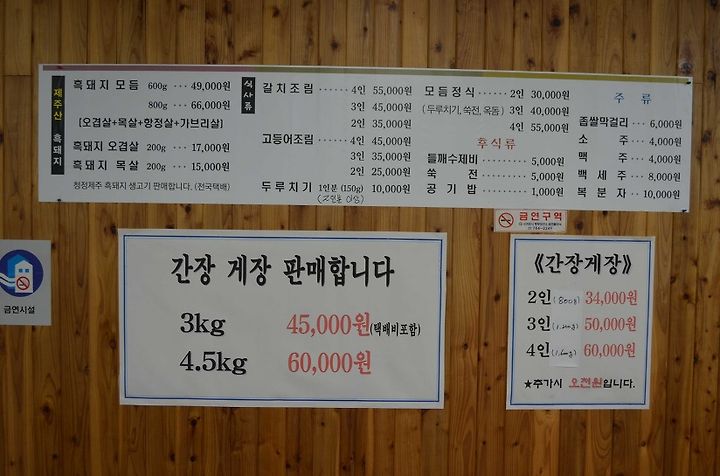 제주산 흑돼지
흑돼지 모듬 600g ··· 49,000원
800g ··· 66,000원
[오겹살+목살+항정살+가브리살]
흑돼지 오겹살 200g ··· 17,000원
흑돼지 목살 200g ··· 15,000원
청정제주 흑돼지 생고기 판매합니다. (전국택배)
식사류
갈치조림 ······ 4인 55,000원
3인 45,000원
2인 35,000원
고등어조림 ······ 4인 45,000원
3인 35,000원
2인 25,000원
두루치기 1인분 (150g) 10,000원
모듬정식 ······ 2인 30,000원
(두루치기, 쑥전, 옥돔) 3인 40,000원
4인 55,000원
후식류
들깨수제비 ······ 5,000원
쑥전 ······ 5,000원
공기밥 ······ 1,000원
주류
좁쌀막걸리 ··· 6,000원
소주 ··· 4,000원
맥주 ··· 4,000원
백세주 ··· 8,000원
복분자 ·· 10,000원
금연구역
금연시설
간장 게장 판매합니다
3kg 45,000원(택배비포함)
4.5kg 60,000원
《간장게장》
2인 (800g) 34,000원
3인 50,000원
4인 60,000원
★추가시 오천원입니다.